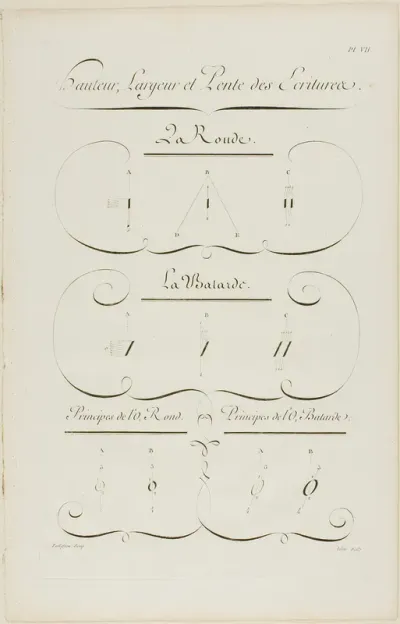 Pl. VII
Hauteur, Largeur et Pente des Ecritures.
La Ronde.
A B C
D D
La Batarde.
A B C
Principes de l'O, Rond. Principes de l'O, Batarde.
A B A B